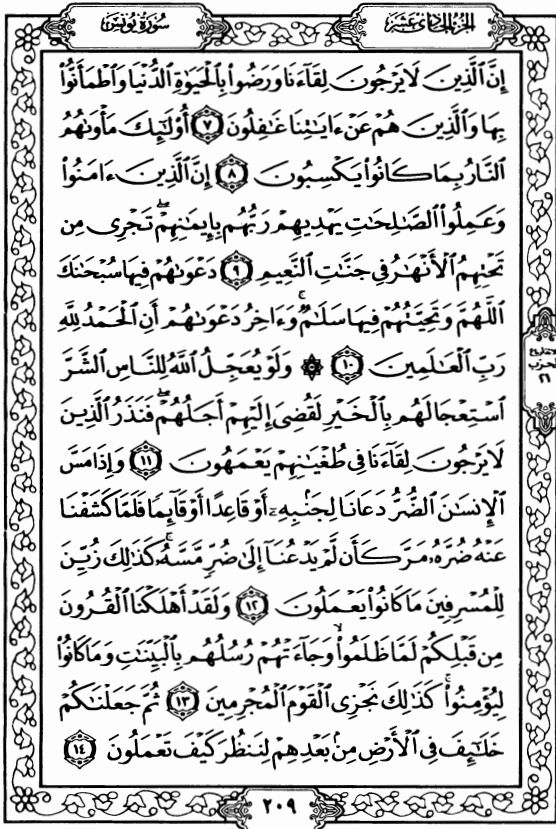 سُورَةُ يُونُسَ
الجُزْءُ الحَادِيَ عَشَرَ
إِنَّ ٱلَّذِينَ لَا يَرْجُونَ لِقَآءَنَا وَرَضُوا۟ بِٱلْحَيَوٰةِ ٱلدُّنْيَا وَٱطْمَأَنُّوا۟
بِهَا وَٱلَّذِينَ هُمْ عَنْ ءَايَٰتِنَا غَٰفِلُونَ ٧ أُو۟لَٰٓئِكَ مَأْوَىٰهُمُ
ٱلنَّارُ بِمَا كَانُوا۟ يَكْسِبُونَ ٨ إِنَّ ٱلَّذِينَ ءَامَنُوا۟
وَعَمِلُوا۟ ٱلصَّٰلِحَٰتِ يَهْدِيهِمْ رَبُّهُم بِإِيمَٰنِهِمْ ۖ تَجْرِى مِن
تَحْتِهِمُ ٱلْأَنْهَٰرُ فِى جَنَّٰتِ ٱلنَّعِيمِ ٩ دَعْوَىٰهُمْ فِيهَا سُبْحَٰنَكَ
ٱللَّهُمَّ وَتَحِيَّتُهُمْ فِيهَا سَلَٰمٌ ۚ وَءَاخِرُ دَعْوَىٰهُمْ أَنِ ٱلْحَمْدُ لِلَّهِ
رَبِّ ٱلْعَٰلَمِينَ ١٠ ۞ وَلَوْ يُعَجِّلُ ٱللَّهُ لِلنَّاسِ ٱلشَّرَّ
ٱسْتِعْجَالَهُم بِٱلْخَيْرِ لَقُضِىَ إِلَيْهِمْ أَجَلُهُمْ ۖ فَنَذَرُ ٱلَّذِينَ
لَا يَرْجُونَ لِقَآءَنَا فِى طُغْيَٰنِهِمْ يَعْمَهُونَ ١١ وَإِذَا مَسَّ
ٱلْإِنسَٰنَ ٱلضُّرُّ دَعَانَا لِجَنۢبِهِۦٓ أَوْ قَاعِدًا أَوْ قَآئِمًا فَلَمَّا كَشَفْنَا
عَنْهُ ضُرَّهُۥ مَرَّ كَأَن لَّمْ يَدْعُنَآ إِلَىٰ ضُرٍّ مَّسَّهُۥ ۚ كَذَٰلِكَ زُيِّنَ
لِلْمُسْرِفِينَ مَا كَانُوا۟ يَعْمَلُونَ ١٢ وَلَقَدْ أَهْلَكْنَا ٱلْقُرُونَ
مِن قَبْلِكُمْ لَمَّا ظَلَمُوا۟ ۙ وَجَآءَتْهُمْ رُسُلُهُم بِٱلْبَيِّنَٰتِ وَمَا كَانُوا۟
لِيُؤْمِنُوا۟ ۚ كَذَٰلِكَ نَجْزِى ٱلْقَوْمَ ٱلْمُجْرِمِينَ ١٣ ثُمَّ جَعَلْنَٰكُمْ
خَلَٰٓئِفَ فِى ٱلْأَرْضِ مِنۢ بَعْدِهِمْ لِنَنظُرَ كَيْفَ تَعْمَلُونَ ١٤
الحزب
٢١
٢٠٩